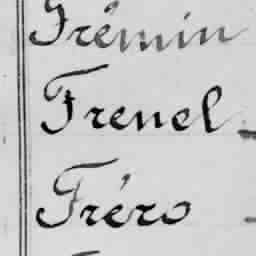 Frémin
Frenel
Fréro